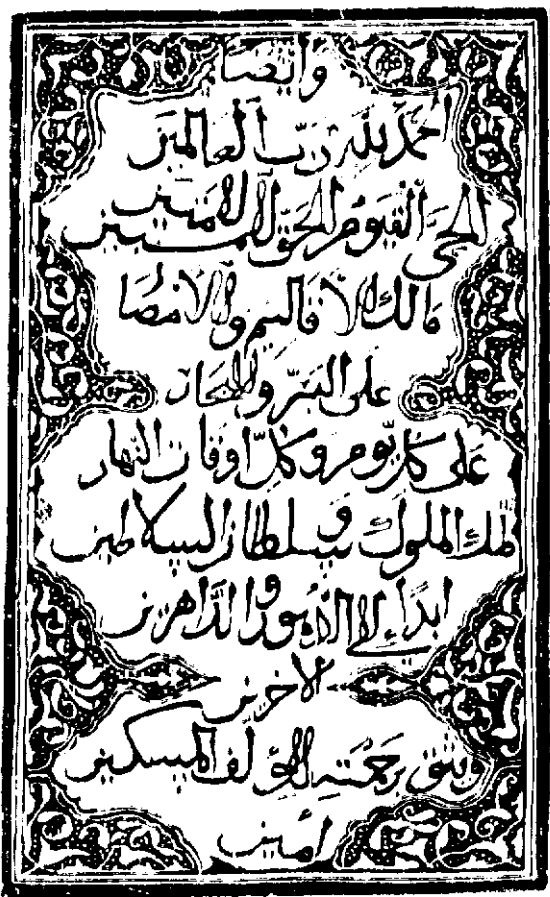 وايضا
الحمد لله رب العالمين
الحى القيوم الحق الامين المبين
مالك الاقاليم والامصا
على البر والبحار
على كل يوم وكل اوقات النهار
ملك الملوك وسلطان السلاطين
ابداء الى الابود والداهرين
الاخرين
ويثق برحمته المؤلف المسكين
امين